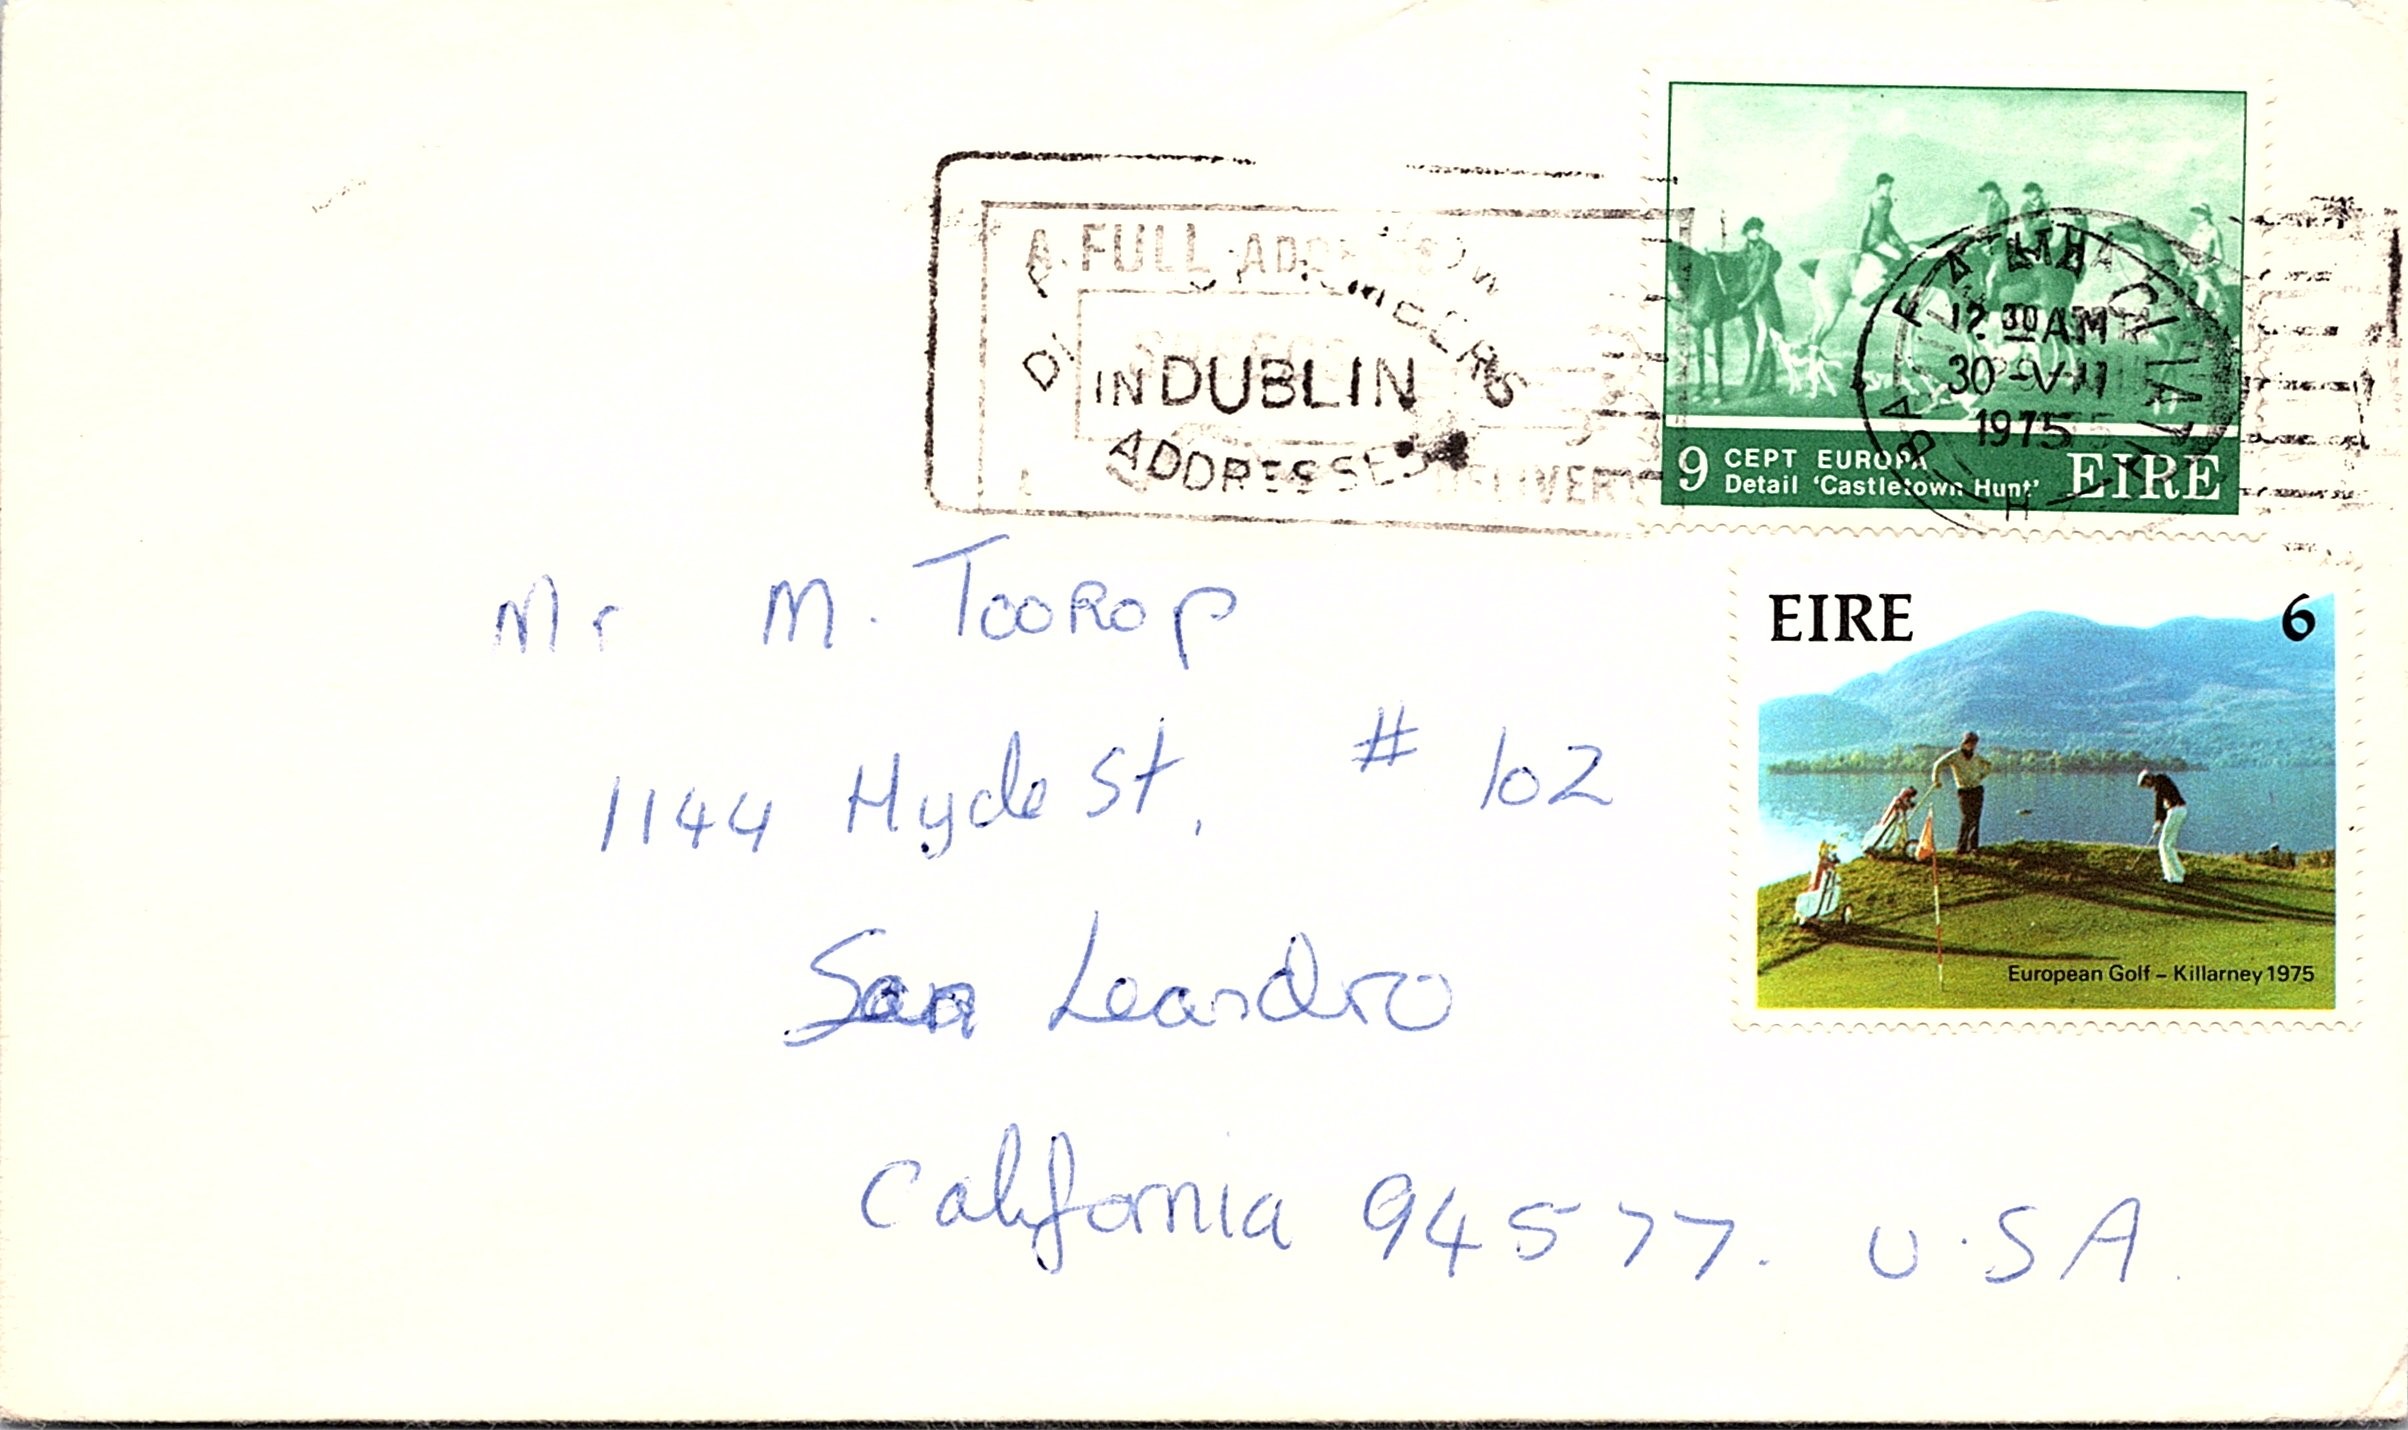 A FULL
NUMBERS
IN DUBLIN
ADDRESSES
DELIVERY
BAILE ÁTHA CLIATH
12 30 AM
30-VII
1975
9 CEPT EUROPA
Detail ‘Castletown Hunt’ EIRE
EIRE 6
European Golf – Killarney 1975
Mr M. Toorop
1144 Hyde St, # 102
San Leandro
California 94577. U.S.A.